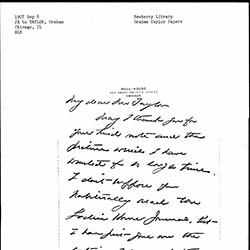 1907 Sep 6
JA to TAYLOR, Graham
Chicago, Il
ALS
Newberry Library
Graham Taylor Papers
HULL-HOUSE
CHICAGO
My dear Mr Taylor
May I thank you for
your kind note and the
picture which I have
wanted for so long a time.
I don't suppose you
habitually read the
Ladies Home Journal, but
I have just gone over the